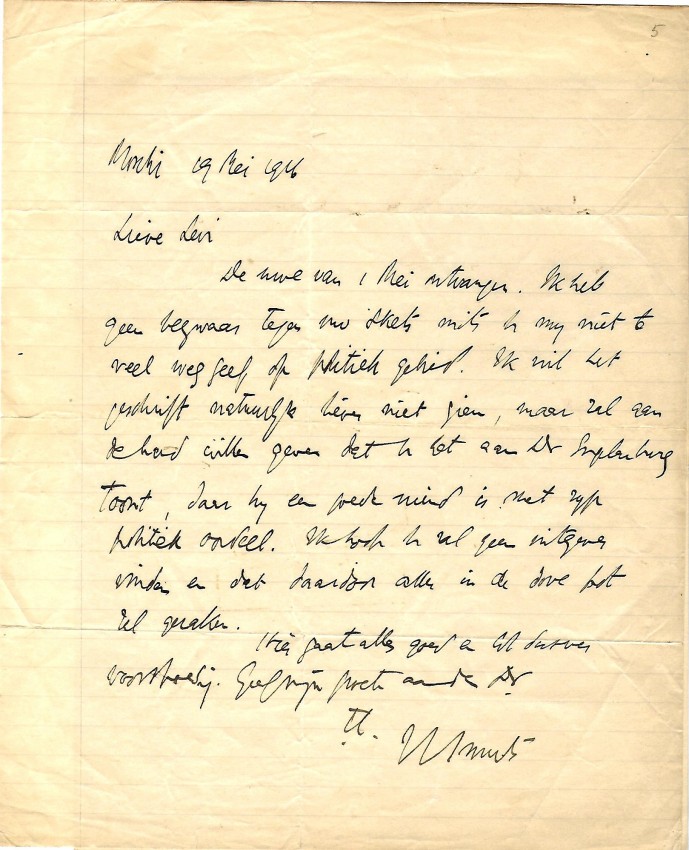 5
Moshi 19 Mei 1916
Lieve Levi
De uwe van 1 Mei ontvangen. Ik heb
geen bezwaar tegen uw Skets mits U my niet te
veel weggeef op politiek gebied. Ik wil het
geschrift natuurlyk liever niet zien, maar zal aan
de hand willen geven dat U het aan Dr
toont, daar hy een goede vriend is met zyn
politiek oordeel. Ik hoop U zal geen uitgever
vinden en dat daardoor alles in de dove pot
zal geraken.
Hier gaat alles goed en
voorspoedig. Geef myn groete aan de Dr.
J C Smuts